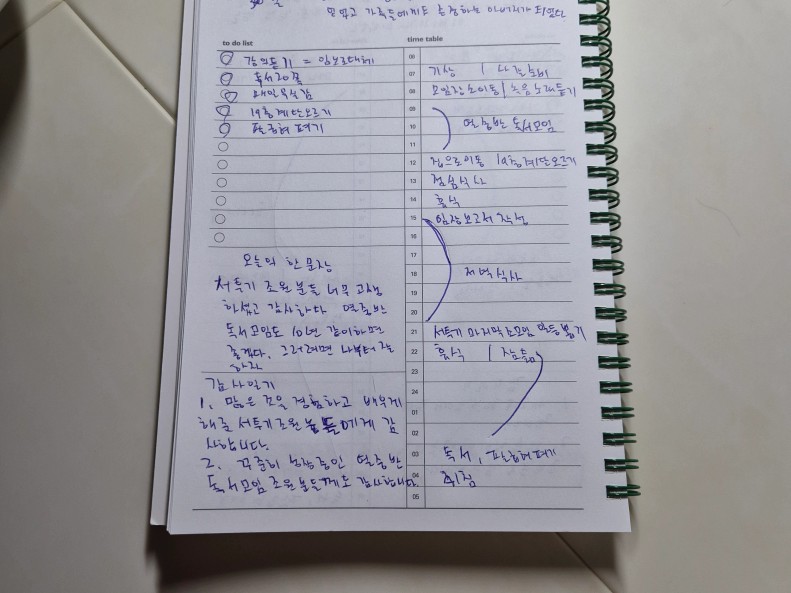 믿었고 가족들에게도 충실하는 아버지가 되었다
to do list
강의듣기 = 임보르대체
독서 20쪽
19층 계단오르기
time table
06
07 기상 / 나갈준비
08 모임장소이동 / 녹음 노래듣기
09
10 열중반 독서모임
11
12 집으로이동 19층계단오르기
13 점심식사
14 휴식
15 임장보고서 작성
16
17
18 저녁식사
19
20
21 서투기 마지막 조모임 활동 뽑기
22 휴식 / 잠듦
23
24
01
02
03 독서,
04 취침
05
오늘의 한 문장
서투기 조원분들 너무 고생
하셨고 감사하다 열중반
독서모임도 10년 같이하면
좋겠다. 그러려면 나부터 잘
하자
감사일기
1. 많은 것을 경험하고 배우게
해준 서투기조원분들에게 감
사합니다.
2. 꾸준히 성장중인 열중반
독서모임 조원분들께도 감사합니다.